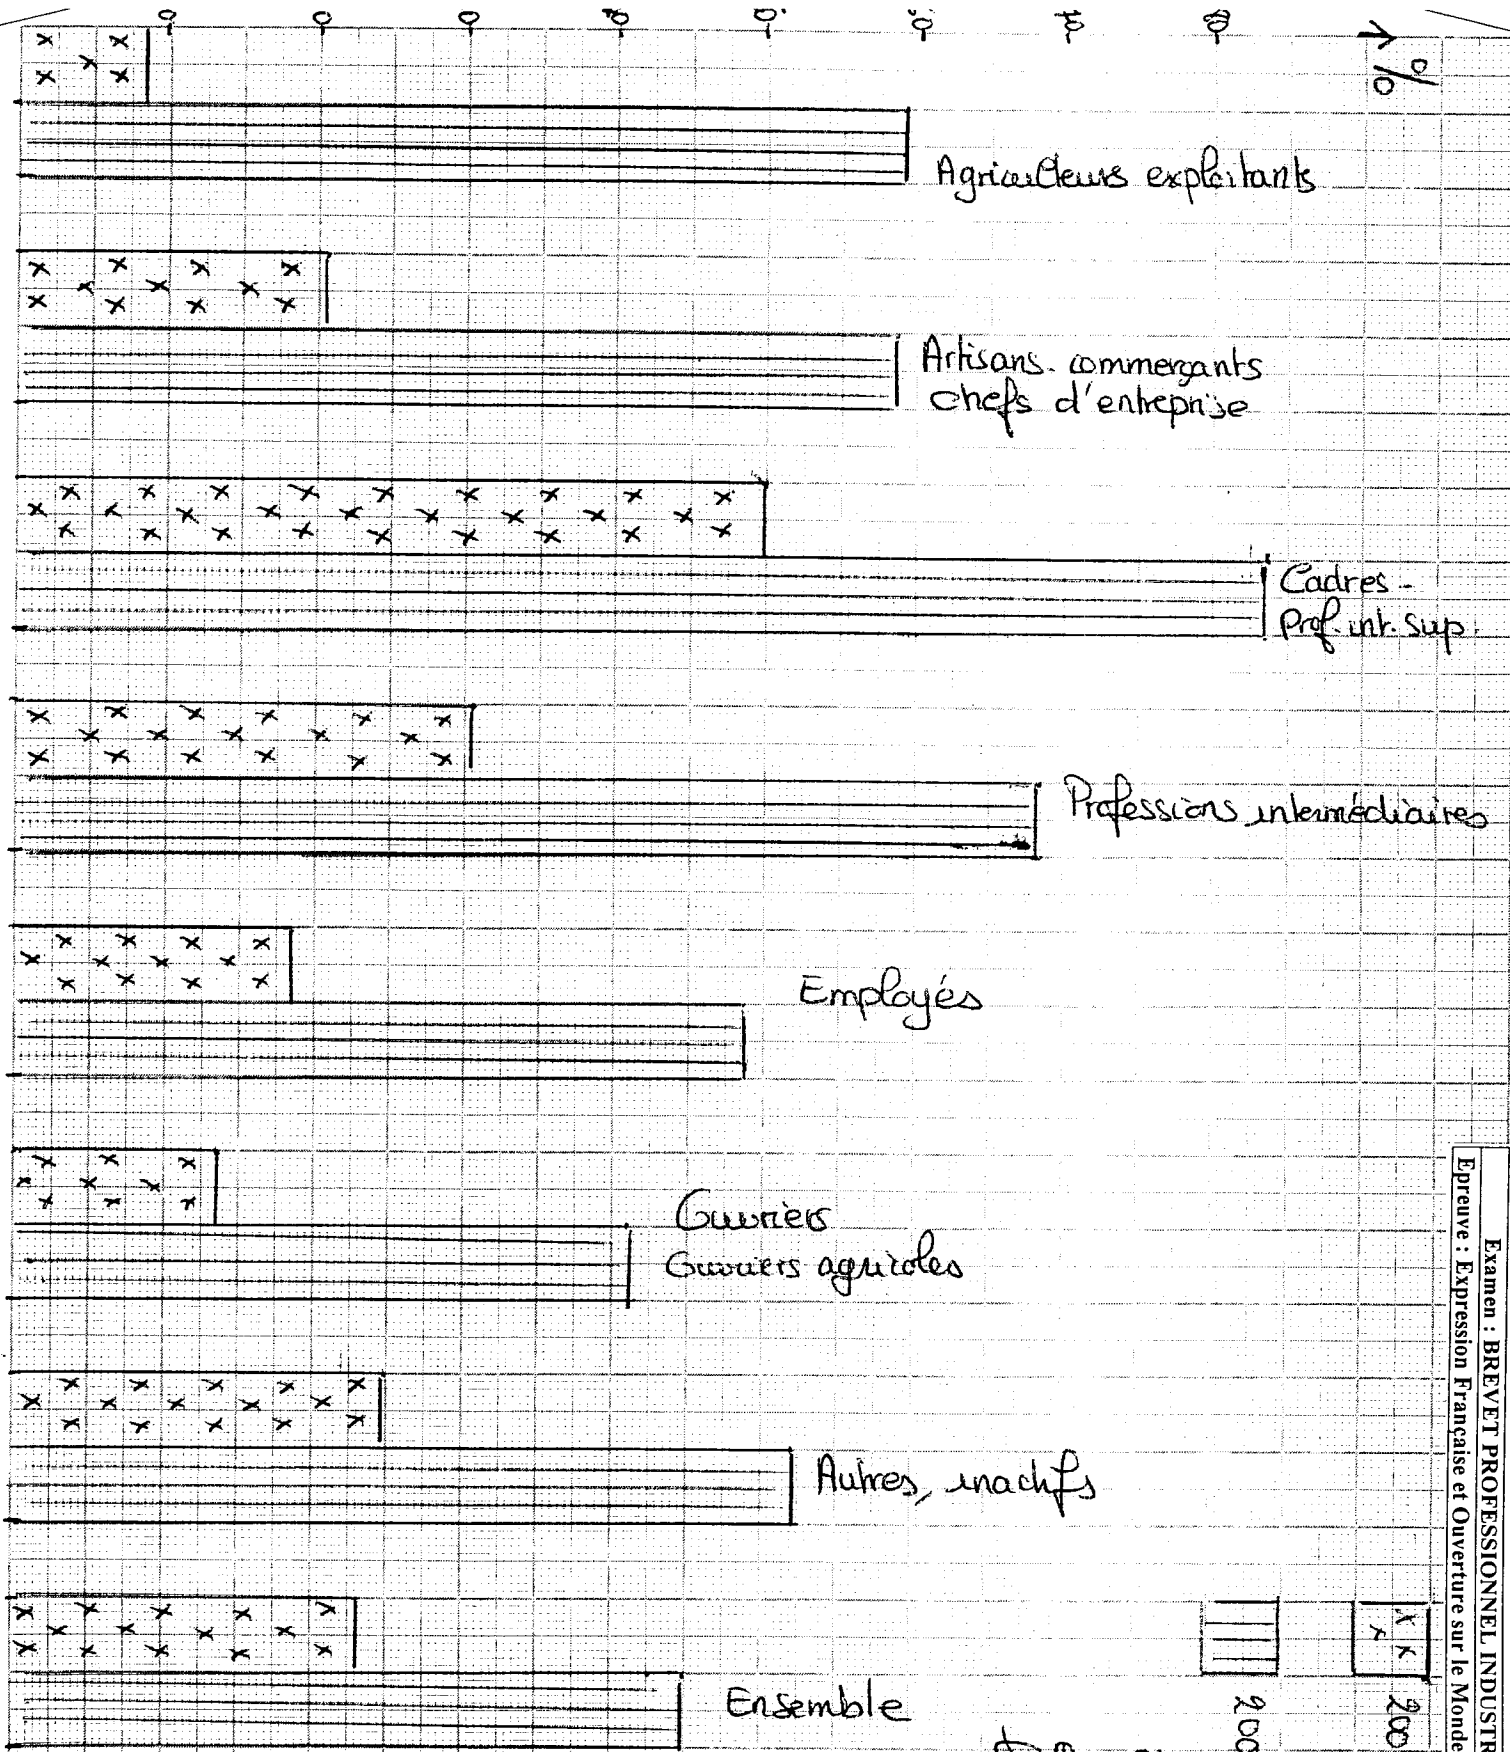 %
Agriculteurs exploitants
Artisans. commerçants
chefs d'entreprise
Cadres -
Prof. int. Sup.
Professions intermédiaires
Employés
Ouvriers
Ouvriers agricoles
Autres, inactifs
Ensemble
Examen : BREVET PROFESSIONNEL INDUSTR
Epreuve : Expression Française et Ouverture sur le Monde
200
200